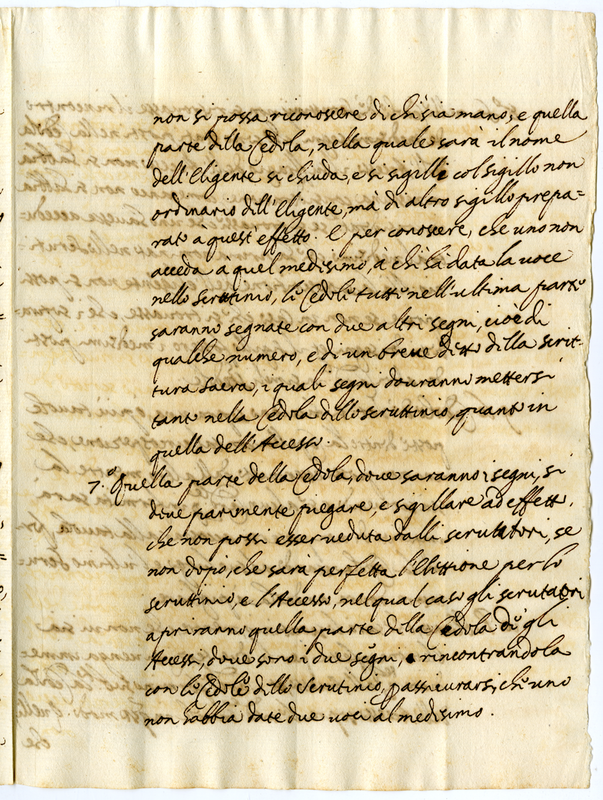 non si possa riconoscere di chi sia mano, e quella
parte della Cedola, nella quale sarà il nome
dell'Eligente si chiuda, e si sigilli col sigillo non
ordinario dell'Eligente, mà di altro sigillo prepa=
rato à quest'effetto. E per conoscere, che uno non
acceda à quel medesimo, à chi hà data la voce
nello scruttinio, le Cedole tutte nell'ultima parte
saranno segnate con due altri segni, cioè di
qualche numero, e di un breve detto della Scrit-
tura Sacra, i quali segni dovranno mettersi
tanto nella Cedola dello scruttinio, quanto in
quella dell'Accesso.
7.° Quella parte della Cedola, dove saranno i segni, si
deve parimente piegare, e sigillare ad effetto,
che non possi esser veduta dalli scrutatori, se
non dopo, che sarà perfetta l'Elettione per lo
scruttinio, e l'Accesso, nel qual caso gli scrutatori
apriranno quella parte della Cedola de gli
Accessi, dove sono i due segni, e rincontrandola
con le Cedole dello Scrutinio, assicurarsi, che uno
non habbia date due voci al medesimo.
che